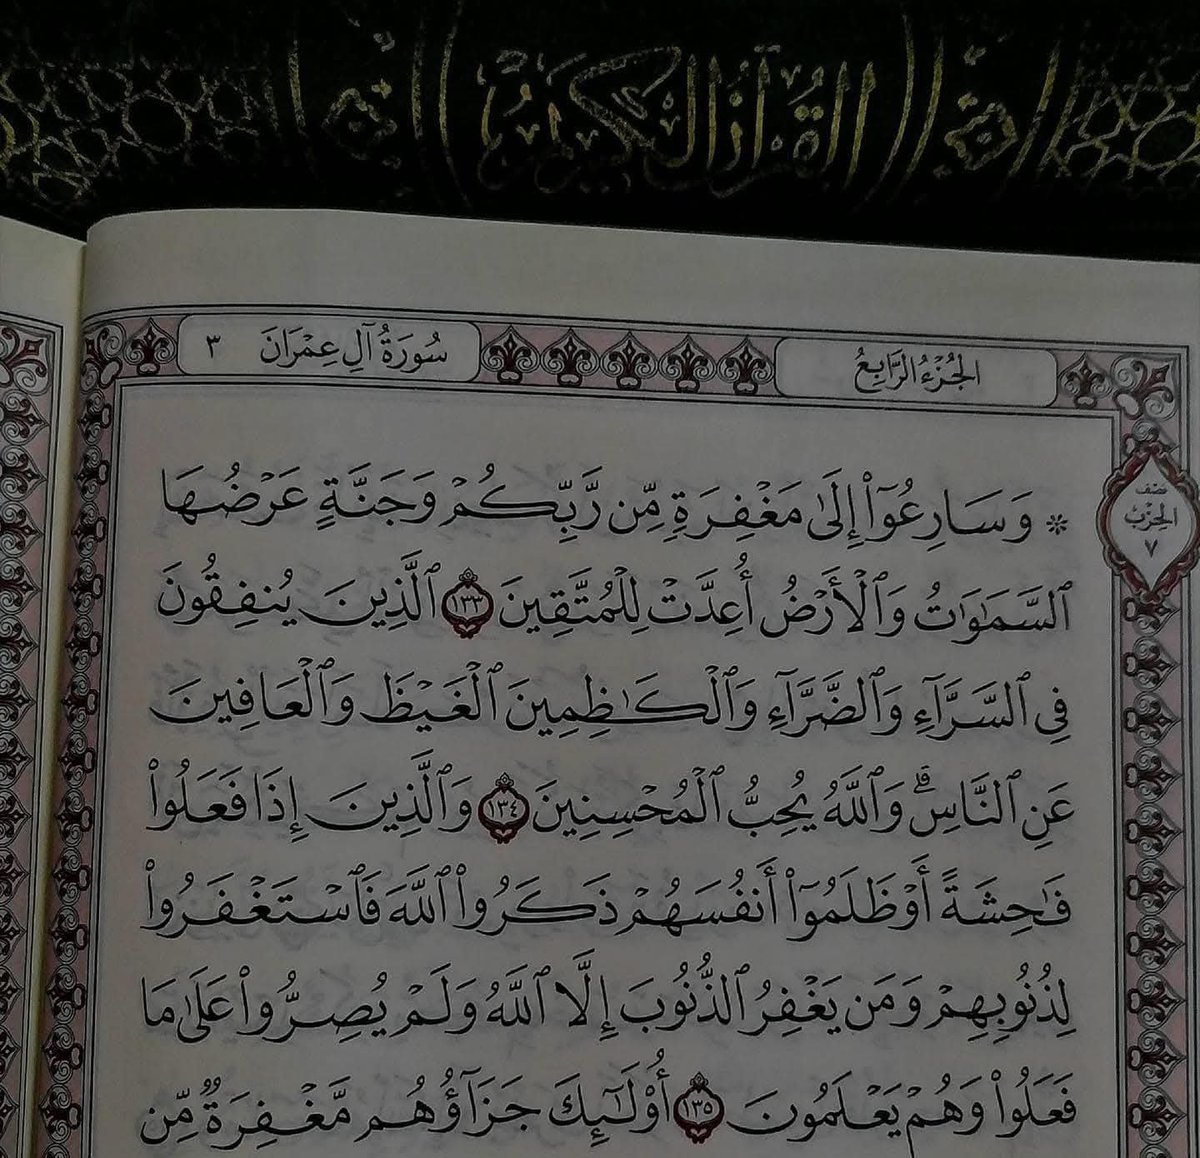 القرآن الكريم
سُورَةُ آلِ عِمْرَانَ ٣
الجُزْءُ الرَّابِعُ
نصف
الحزب
٧
۞ وَسَارِعُوٓا۟ إِلَىٰ مَغْفِرَةٍ مِّن رَّبِّكُمْ وَجَنَّةٍ عَرْضُهَا
ٱلسَّمَـٰوَٰتُ وَٱلْأَرْضُ أُعِدَّتْ لِلْمُتَّقِينَ ١٣٣ ٱلَّذِينَ يُنفِقُونَ
فِى ٱلسَّرَّآءِ وَٱلضَّرَّآءِ وَٱلْكَـٰظِمِينَ ٱلْغَيْظَ وَٱلْعَافِينَ
عَنِ ٱلنَّاسِ ۗ وَٱللَّهُ يُحِبُّ ٱلْمُحْسِنِينَ ١٣٤ وَٱلَّذِينَ إِذَا فَعَلُوا۟
فَـٰحِشَةً أَوْ ظَلَمُوٓا۟ أَنفُسَهُمْ ذَكَرُوا۟ ٱللَّهَ فَٱسْتَغْفَرُوا۟
لِذُنُوبِهِمْ وَمَن يَغْفِرُ ٱلذُّنُوبَ إِلَّا ٱللَّهُ وَلَمْ يُصِرُّوا۟ عَلَىٰ مَا
فَعَلُوا۟ وَهُمْ يَعْلَمُونَ ١٣٥ أُو۟لَـٰٓئِكَ جَزَآؤُهُم مَّغْفِرَةٌ مِّن